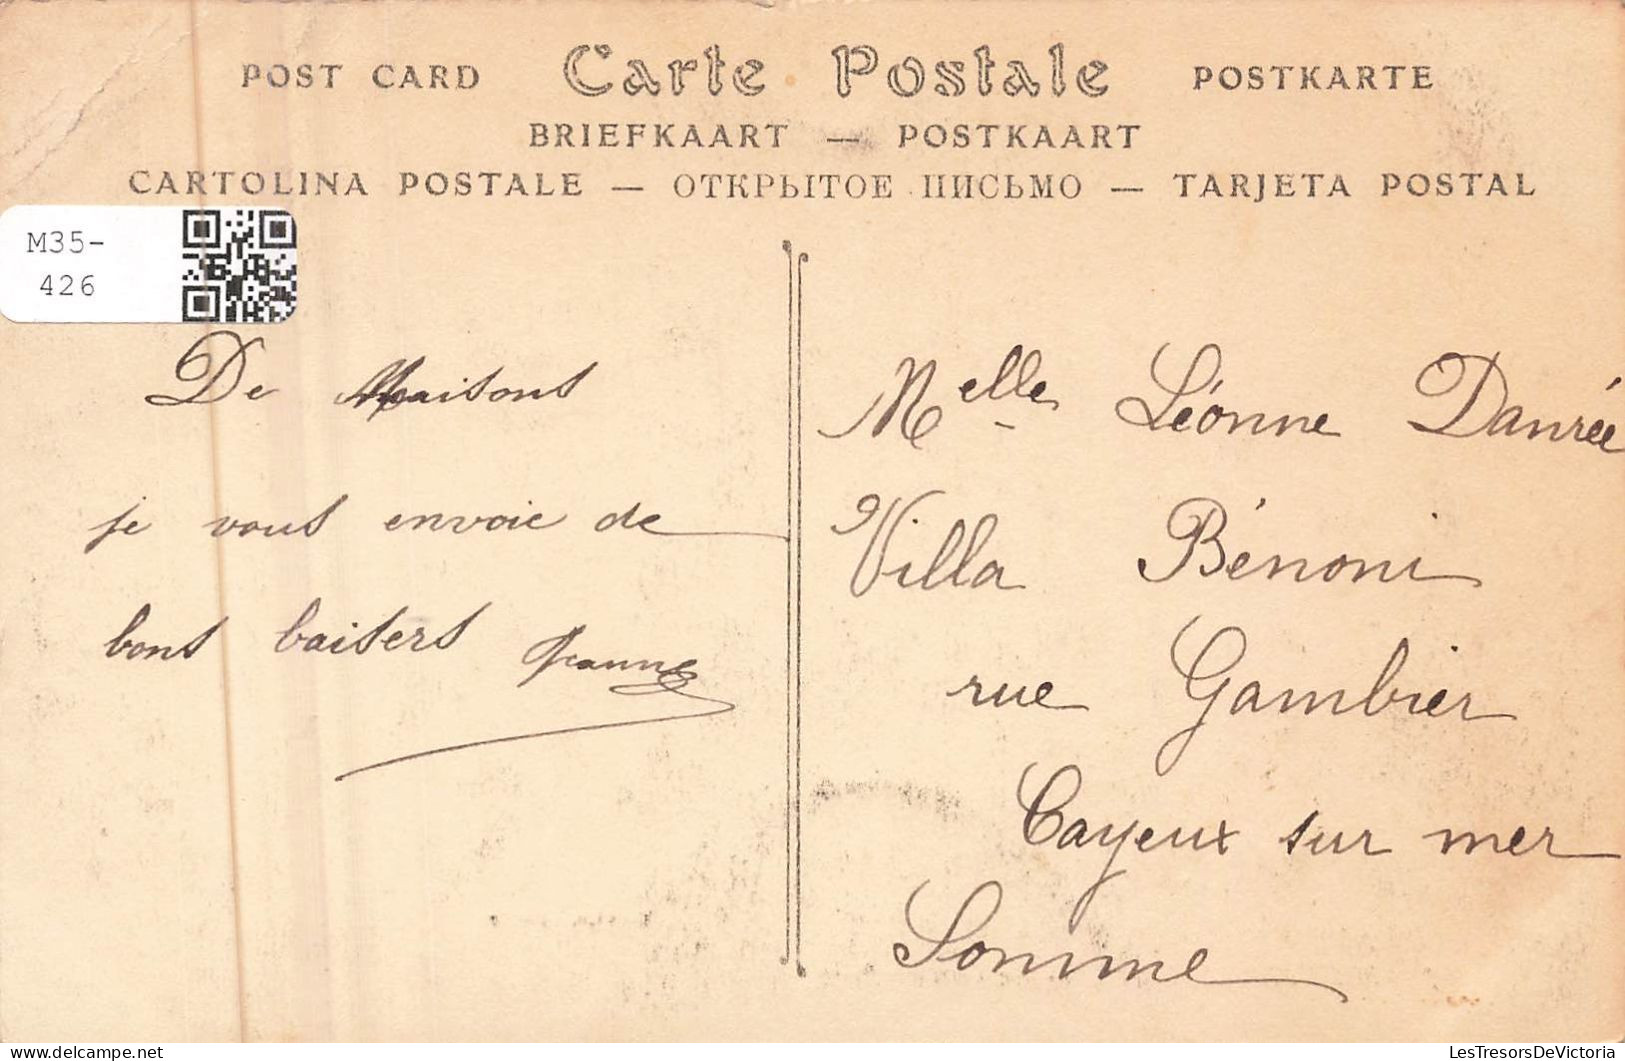 POST CARD Carte Postale POSTKARTE
BRIEFKAART — POSTKAART
CARTOLINA POSTALE — ОТКРЫТОЕ ПИСЬМО — TARJETA POSTAL
M35-
426
De Maisons
je vous envoie de
bons baisers Jeanne
Melle Léonne Danrée
Villa Bénoni
rue Gambier
Cayeux sur mer
Somme
LesTresorsDeVictoria